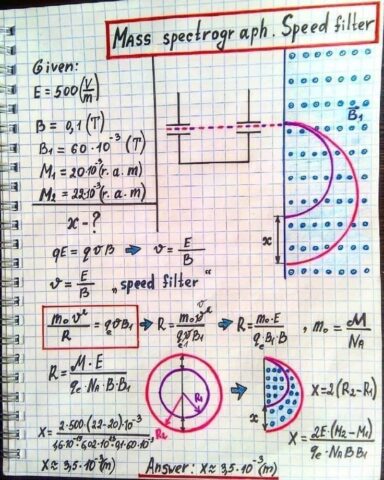 Mass spectrograph. Speed filter
Given:
E = 500 (V/m)
B = 0,1 (T)
B₁ = 60·10⁻³ (T)
M₁ = 20·10⁻³ (r.a.m)
M₂ = 22·10⁻³ (r.a.m)
x - ?
B₁
x
qE = qvB ➡ v = E/B
v = E/B „speed filter“
m₀v²/R = qₑvB₁ ➡ R = m₀v²/qₑvB₁ ➡ R = m₀·E/qₑB₁·B , m₀ = M/Nₐ
R = M·E/qₑ·Nₐ·B·B₁
R₁
R₂
x
X = 2(R₂-R₁)
X = 2·500(22-20)·10⁻³/1,6·10⁻¹⁹·6,02·10²³·0,1·60·10⁻³
X = 2E·(M₂-M₁)/qₑ·Nₐ B B₁
X ≈ 3,5·10⁻³ (m)
Answer: X ≈ 3,5·10⁻³ (m)